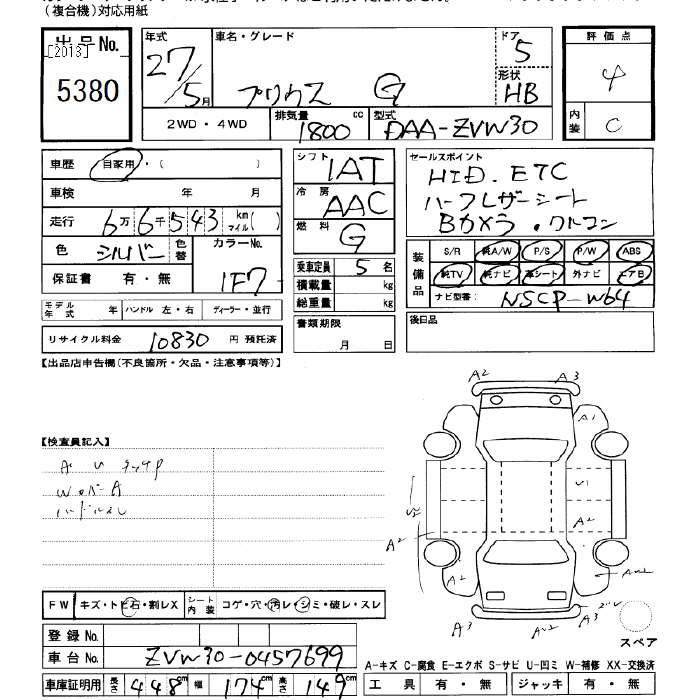 (複合機)対応用紙
出品No.
[2013]
5380
年式
27/5月
車名・グレード
プリウス G
ドア
5
形状
HB
評価点
4
内装
C
2WD・4WD
排気量
1800
cc
型式
DAA-ZVW30
車歴
自家用・( )
車検 年 月
走行 6万6千543 km マイル( )
色 シルバー 色替
カラーNo.
1F7
保証書 有・無
モデル年式 年 ハンドル 左・右 ディーラー・並行
リサイクル料金 10830 円 預託済
シフト
IAT
冷房
AAC
燃料
G
乗車定員 5 名
積載量 kg
総重量 kg
書類期限
月 日
セールスポイント
HID. ETC
ハーフレザーシート
Bカメラ.クルコン
装備品
S/R 純A/W P/S P/W ABS
純TV 純ナビ 革シート 外ナビ エアB
ナビ型番: NSCP-W64
後日品
【出品店申告欄(不良箇所・欠品・注意事項等)】
【検査員記入】
A2
A3
A1
U1
A2
A2
A2
A3
A3
スペア
FW キズ・トビ石・割レX
シート内装 コゲ・穴・汚レ・シミ・破レ・スレ
登録No.
車台No. ZVW30-0457699
車庫証明用 長さ 448cm 幅 174cm 高さ 149cm
A-キズ C-腐食 E-エクボ S-サビ U-凹ミ W-補修 XX-交換済
工具 有・無 ジャッキ 有・無